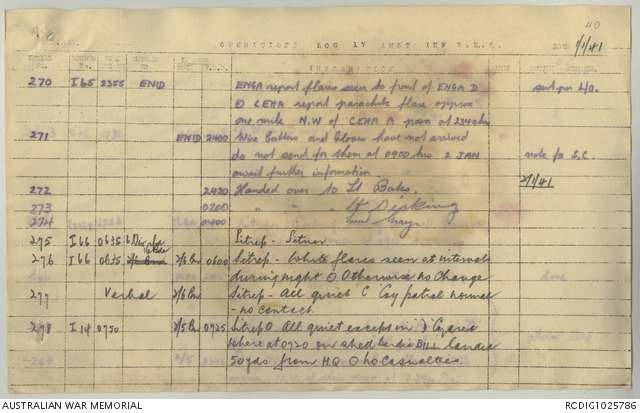 40
OPERATIONS LOG 17 AUST INF BDE.
DATE 1/1/41
INFORMATION
270 I65 2355 ENID ENGA report flares seen to front of ENGA D sent per L/O.
CEHA report parachute flare approx
one mile N.W of CEHA A posn at 2340 hrs
271 ENID 2400 Wire Cutters and Gloves have not arrived
do not send for them at 0900 hrs 2 JAN note for S.C.
await further information
2/1/41
272 2420 Handed over to Lt Bates.
273 0200 " " Lt
274 0400 " "
275 I66 0635 6 Div Sitrep -
276 I66 0635 2/6 Bn 0600 Sitrep - White flares seen at intervals
during night Otherwise no Change
277 Verbal 2/6 Bn Sitrep - All quiet C Coy patrol normal
- no contact.
278 I14 0750 2/5 Bn 0725 Sitrep All quiet except in D Coy area
where at 0720 one shell landed
50 yds from H.Q no casualties.
AUSTRALIAN WAR MEMORIAL
RCDIG1025786